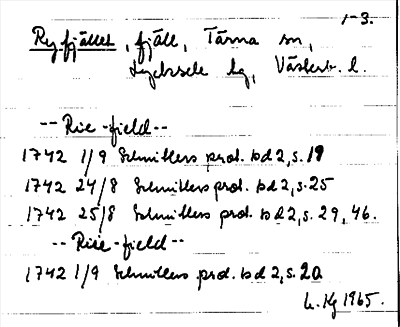 1-3.
Ryfjället, fjäll, Tärna sn,
Lycksele lg, Västerb. l.
-- Rie-field --
1742 1/9 Schnitlers prot. bd 2, s. 19
1742 24/8 Schnitlers prot. bd 2, s. 25
1742 25/8 Schnitlers prot. bd 2, s. 29, 46.
-- Rie-field --
1742 1/9 Schnitlers prot. bd 2, s. 20
Kg 1965.